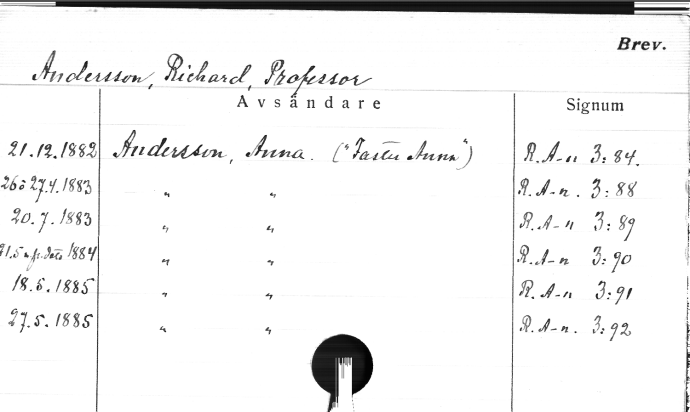 Brev.
Andersson, Richard, Professor
Avsändare Signum
21.12.1882 Andersson, Anna. ("Faster Anna") R. A-n 3:84.
26 o 27.4.1883 " " R. A-n. 3:88
20.7.1883 " " R. A-n 3:89
1884 " " R. A-n 3:90
18.5.1885 " " R. A-n 3:91
27.5.1885 " " R. A-n. 3:92